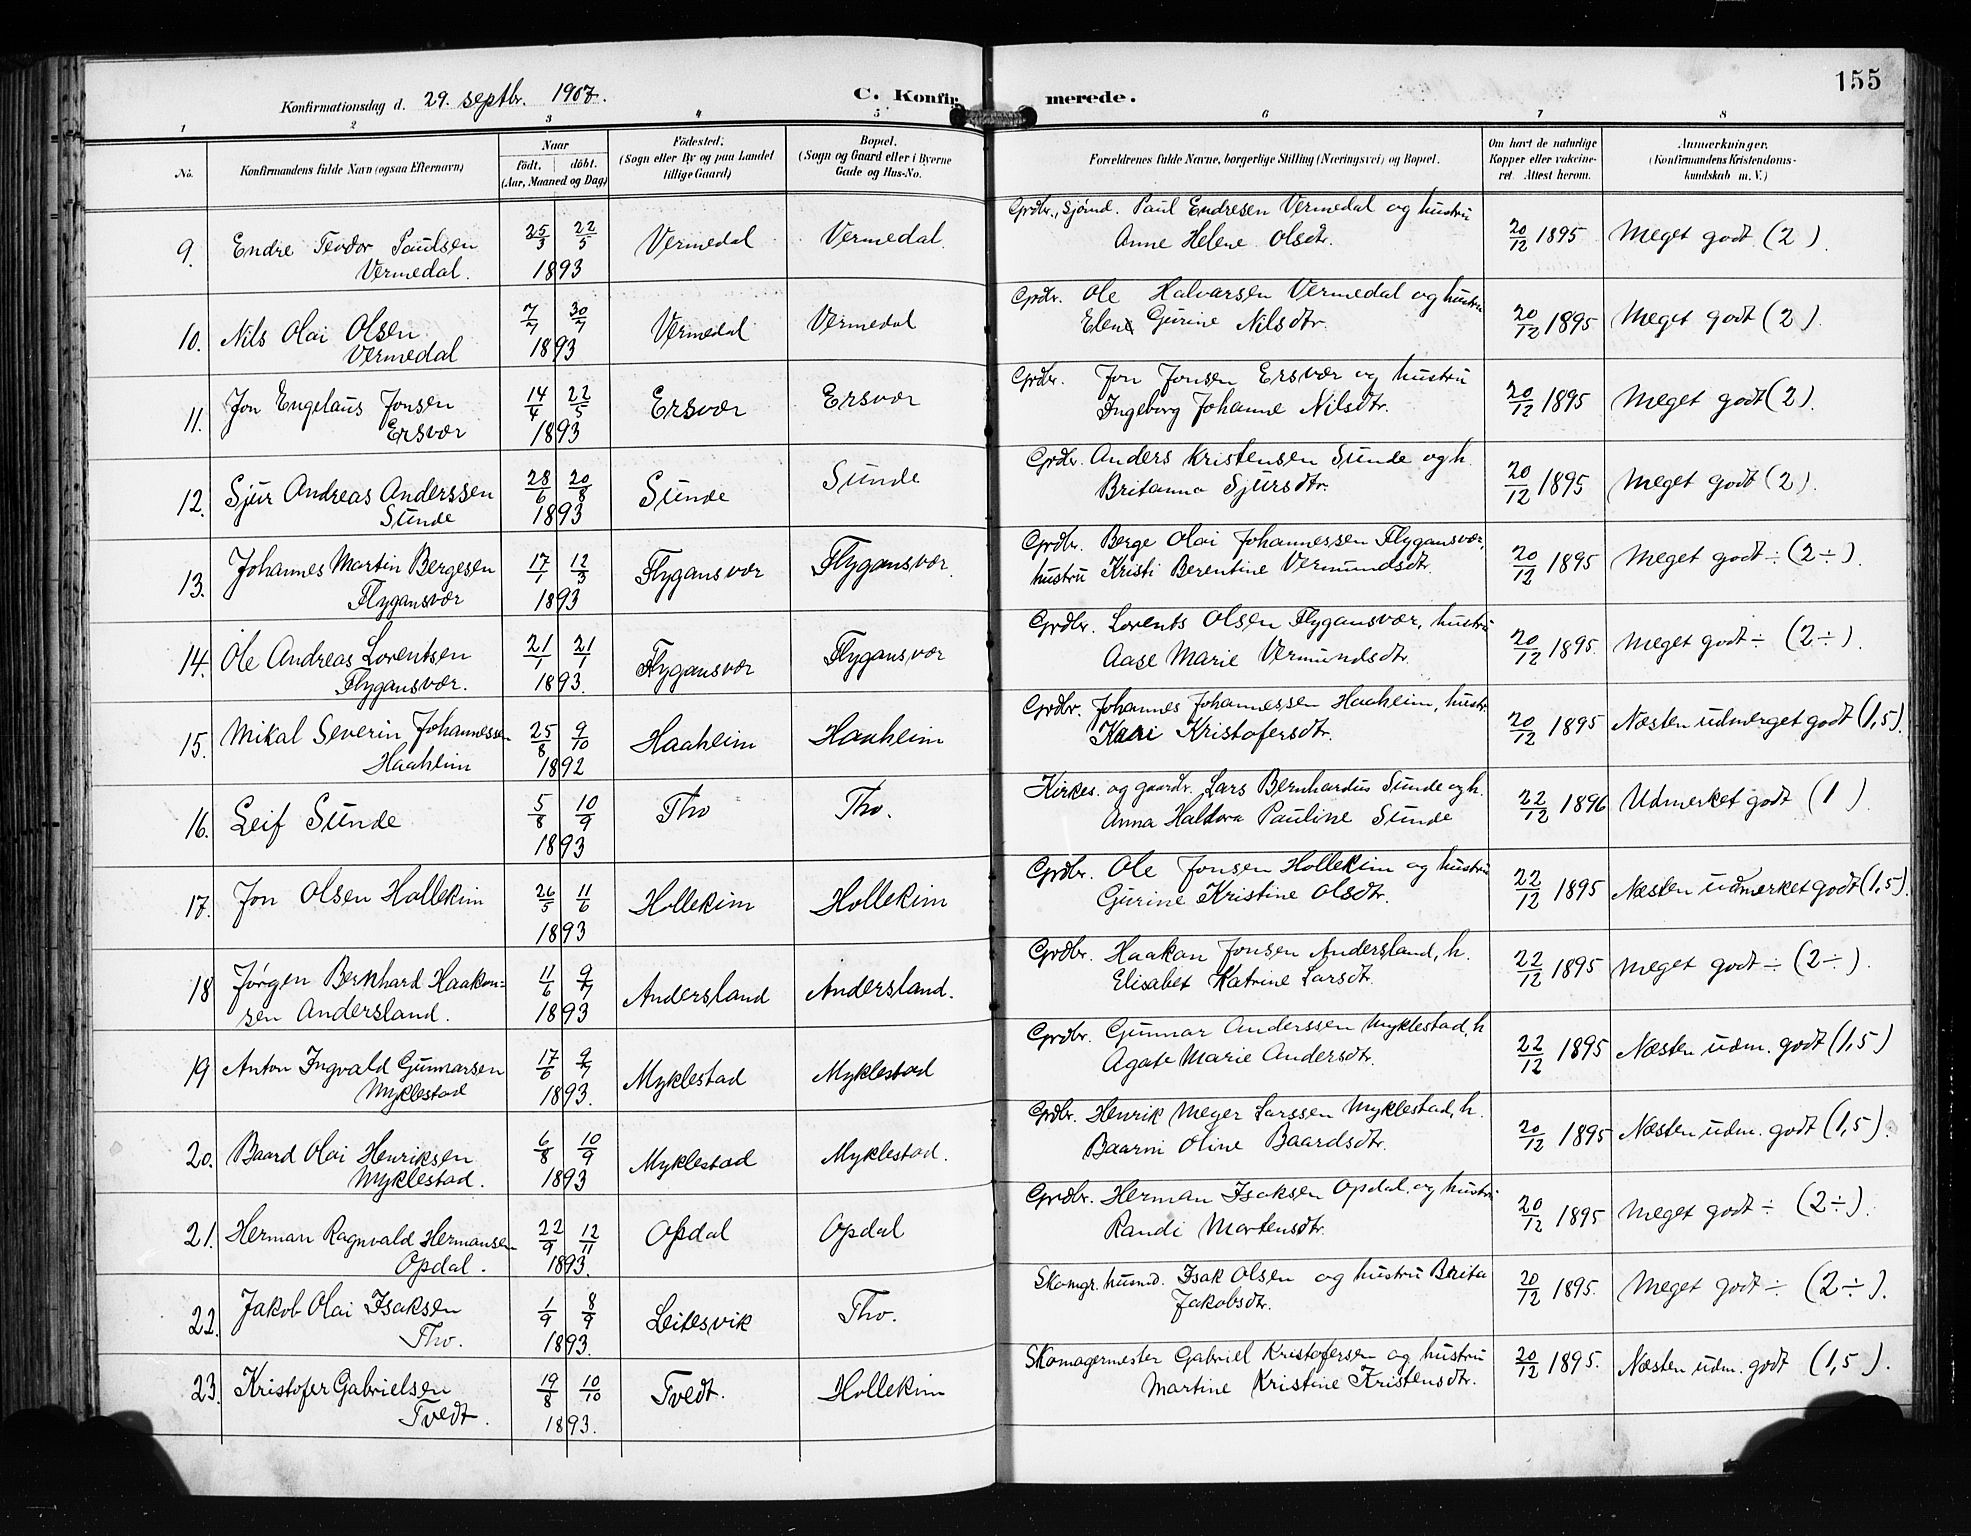 155
Konfirmationsdag d. 29. septbr. 1907. C. Konfirmerede.
1 2 3 4 5 6 7 8
No. Konfirmandens fulde Navn (ogsaa Efternavn) Naar födt, döbt. (Aar, Maaned og Dag) Födested. (Sogn eller By og paa Landet tillige Gaard) Bopæl. (Sogn og Gaard eller i Byerne Gade og Hus-No. Forældrenes fulde Navne, borgerlige Stilling (Næringsvei) og Bopæl. Om havt de naturlige Kopper eller vaccineret. Attest herom. Anmærkninger. (Konfirmandens Kristendomskundskab m. V.)
9. Endre Teodor Paulsen Vermedal. 25/3 22/5 1893 Vermedal Vermedal. Grdbr., Sjömd. Paul Endresen Vermedal og hustru Anne Helene Olsdtr. 20/12 1895 Meget godt (2).
10. Nils Olai Olsen Vermedal 7/7 30/7 1893 Vermedal Vermedal Grdbr. Ole Halvarsen Vermedal og hustru Elen Gurine Nilsdtr. 20/12 1895 Meget godt (2).
11. Jon Engelaus Jonsen Ersvær 14/4 22/5 1893 Ersvær Ersvær Grdbr. Jon Jonsen Ersvær og hustru Ingeborg Johanne Nilsdtr. 20/12 1895 Meget godt (2).
12. Sjur Andreas Anderssen Sunde 28/6 20/8 1893 Sunde Sunde Grdbr. Anders Kristensen Sunde og h. Britanna Sjursdtr. 20/12 1895 Meget godt (2).
13. Johannes Martin Bergesen Flygansvær 17/1 12/3 1893 Flygansvær Flygansvær. Grdbr. Berge Olai Johannessen Flygansvær, hustru Kristi Berentine Vermundsdtr. 20/12 1895 Meget godt ÷ (2÷).
14. Ole Andreas Lorentsen Flygansvær. 21/1 21/1 1893. Flygansvær Flygansvær Grdbr. Lorents Olsen Flygansvær, hustru Aase Marie Vermundsdtr. 20/12 1895. Meget godt ÷ (2÷).
15. Mikal Severin Johannessen Haaheim 25/8 9/10 1892 Haaheim Haaheim Grdbr. Johannes Johannessen Haaheim, hustr. Kari Kristofersdtr. 20/12 1895 Næsten udmerget godt (1,5).
16. Leif Sunde 5/8 10/9 1893 Tho Tho. Kirkes. og gaardr. Lars Bernhardus Sunde og h. Anna Haldora Pauline Sunde 22/12 1896 Udmerket godt (1).
17. Jon Olsen Hollekim 26/5 11/6 1893 Hollekim Hollekim Grdbr. Ole Jonsen Hollekim og hustru Gurine Kristine Olsdtr. 22/12 1895 Næsten udmerket godt (1,5).
18 Jørgen Bernhard Haakonsen Andersland. 11/6 9/7 1893 Andersland Andersland. Grdbr. Haakon Jonsen Andersland, h. Elisabet Katrine Larsdtr. 22/12 1895 Meget godt ÷ (2÷).
19 Anton Ingvald Gunnarsen Myklestad 17/6 9/7 1893. Myklestad Myklestad Grdbr. Gunnar Anderssen Myklestad, h Agate Marie Andersdtr. 22/12 1895 Næsten udm. godt (1,5)
20. Baard Olai Henriksen Myklestad. 6/8 10/9 1893 Myklestad Myklestad. Grdbr. Henrik Meyer Larssen Myklestad, h. Baarni Oline Baardsdtr. 20/12 1895 Næsten udm. godt (1,5).
21. Herman Ragnvald Hermansen Opdal. 22/9 12/11 1893. Opdal Opdal Grdbr. Herman Isaksen Opdal og hustru Randi Mortensdtr. 20/12 1895 Meget godt ÷ (2÷).
22. Jakob Olai Isaksen Tho. 1/9 8/9 1893. Leitesvik Tho. Skomgr. husmd. Isak Olsen og hustru Brita Jakobsdtr. 20/12 1895. Meget godt ÷ (2÷).
23. Kristofer Gabrielsen Tvedt. 19/8 10/10 1893. Tvedt. Hollekim Skomagermester Gabriel Kristofersen og hustru Martine Kristine Kristensdtr. 20/12 1895. Næsten udm. godt (1,5).